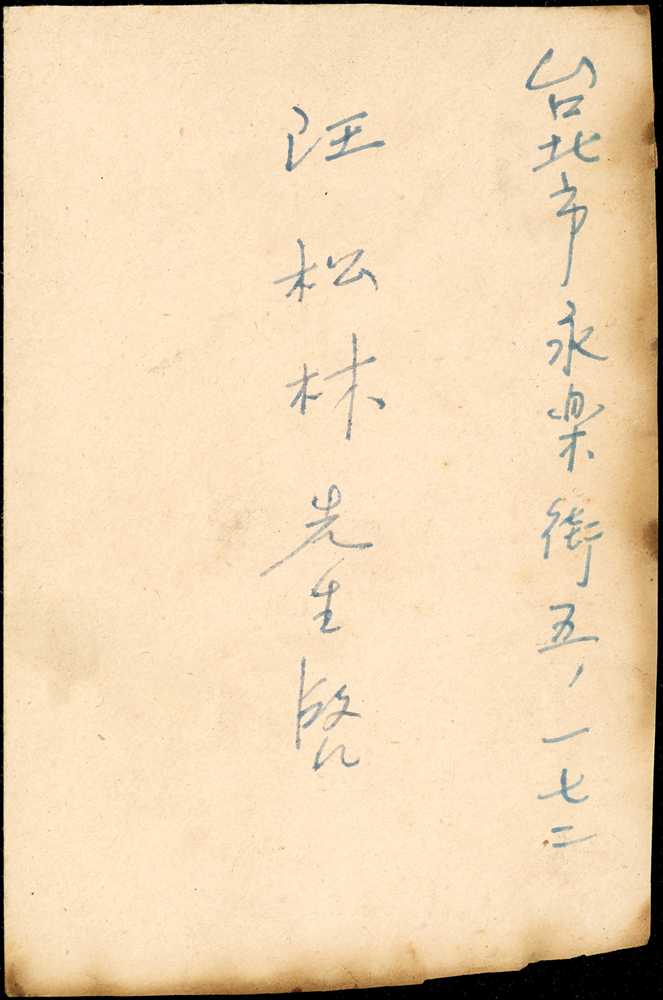 台北市永楽街五、一七二
汪松林先生啓